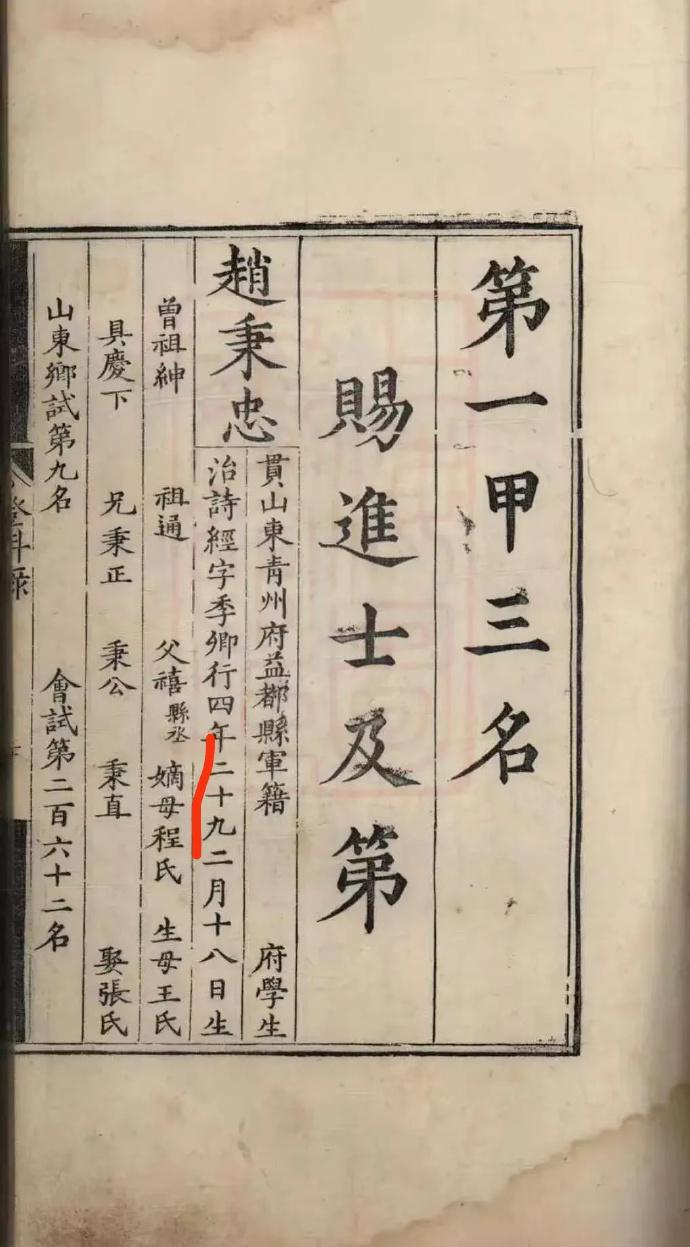 第一甲三名
賜進士及第
趙秉忠
貫山東青州府益都縣軍籍 府學生
治詩經字季卿行四年二十九二月十八日生
曾祖紳 祖通 父禧縣丞 嫡母程氏 生母王氏
具慶下 兄秉正 秉公 秉直 娶張氏
山東鄉試第九名 會試第二百六十二名
登科錄